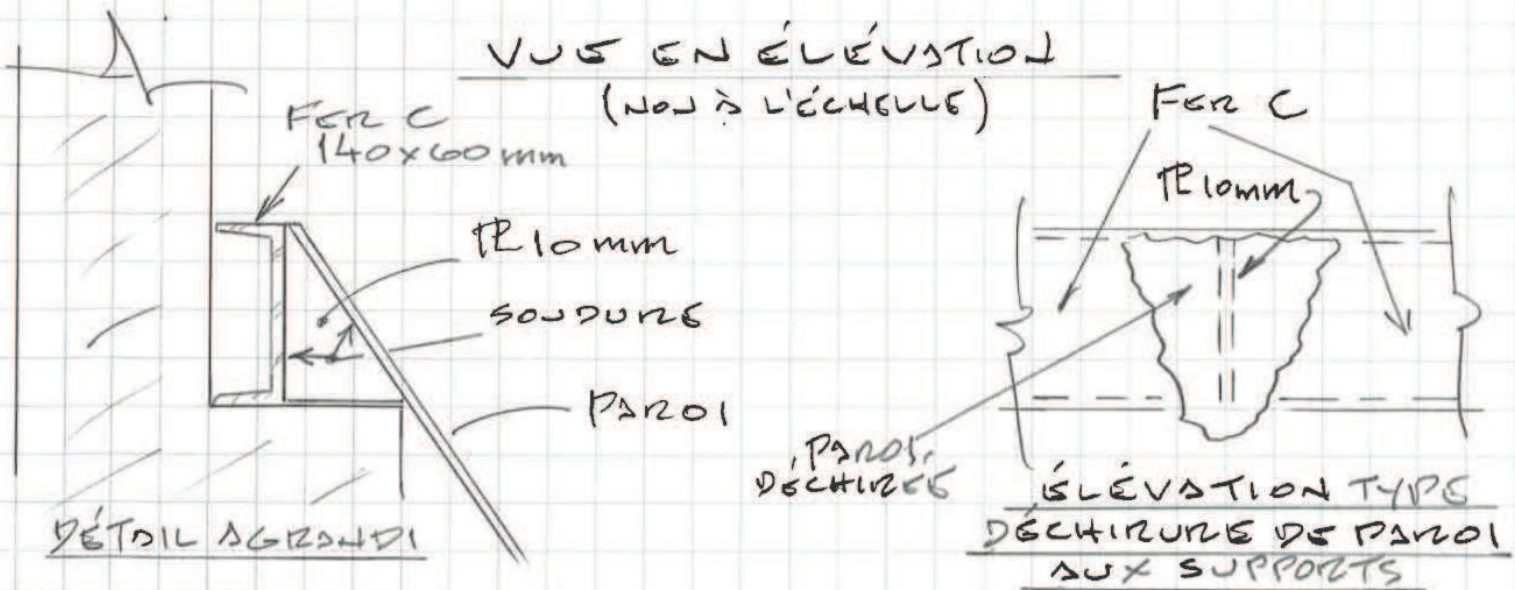 VUE EN ÉLÉVATION
(NON À L'ÉCHELLE)
FER C
140x60mm
PL 10mm
SOUDURE
PAROI
DÉTAIL AGRANDI
FER C
PL 10mm
PAROI
DÉCHIRÉE
ÉLÉVATION TYPE
DÉCHIRURE DE PAROI
AUX SUPPORTS